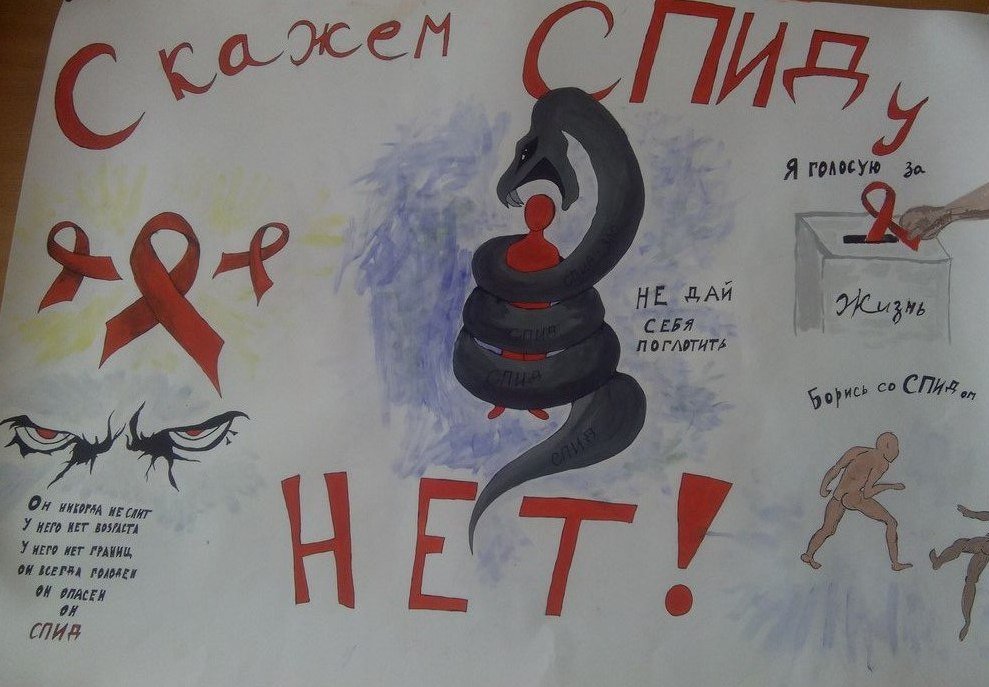 Скажем СПИДу
НЕТ!
Он никогда не спит
У него нет возраста
У него нет границ
он всегда голоден
он опасен
он
СПИД
СПИД
СПИД
СПИД
НЕ ДАЙ
СЕБЯ
ПОГЛОТИТЬ
Я ГОЛОСУЮ за
Жизнь
Борись со СПИДом